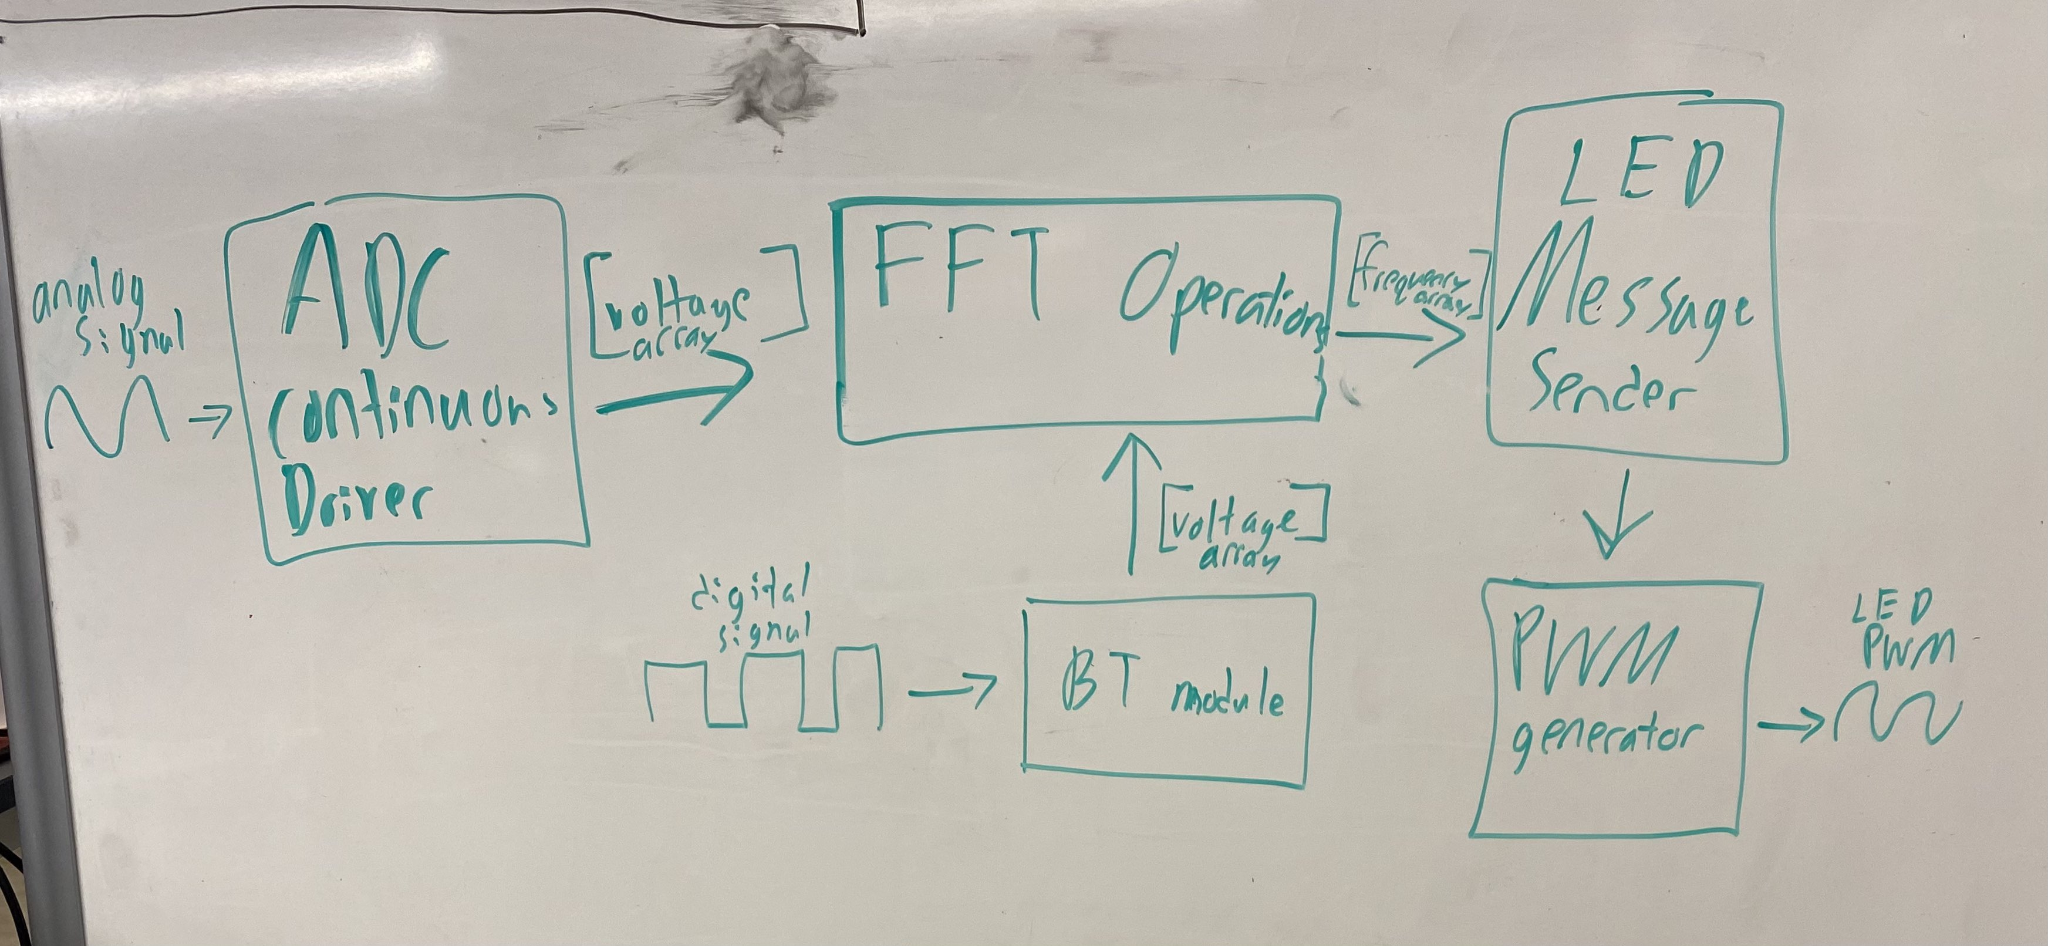 analog
signal
ADC
continuous
Driver
[voltage
array]
FFT Operations
[frequency
array]
LED
Message
Sender
[voltage
array]
digital
signal
BT module
PWM
generator
LED
PWM